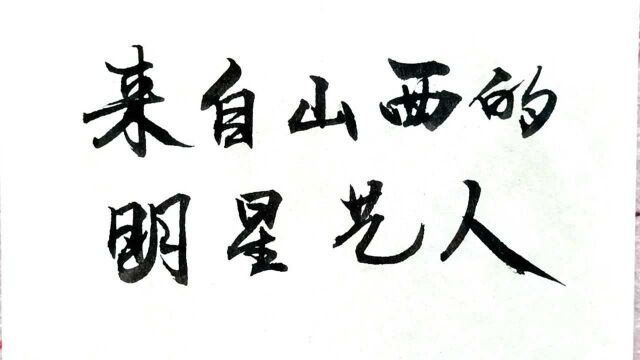 来自山西的
明星艺人